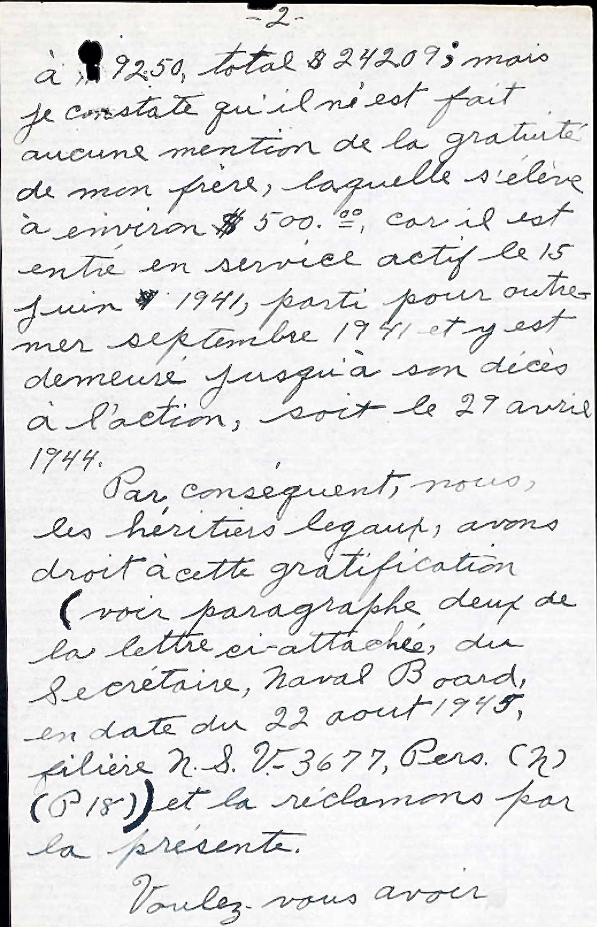 -2-
à 9250, total $ 24209; mais
je constate qu'il n'est fait
aucune mention de la gratuité
de mon frère, laquelle s'élève
à environ $ 500.00, car il est
entré en service actif le 15
juin 1941, parti pour outre-
mer septembre 1941 et y est
demeuré jusqu'à son décès
à l'action, soit le 29 avril
1944.
Par conséquent, nous,
les héritiers legaux, avons
droit à cette gratification
(voir paragraphe deux de
la lettre ci-attachée, du
Secrétaire, Naval Board,
en date du 22 aout 1945,
filière N.S. V-3677, Pers. (N)
(P18)) et la réclamons par
la présente.
Voulez-vous avoir